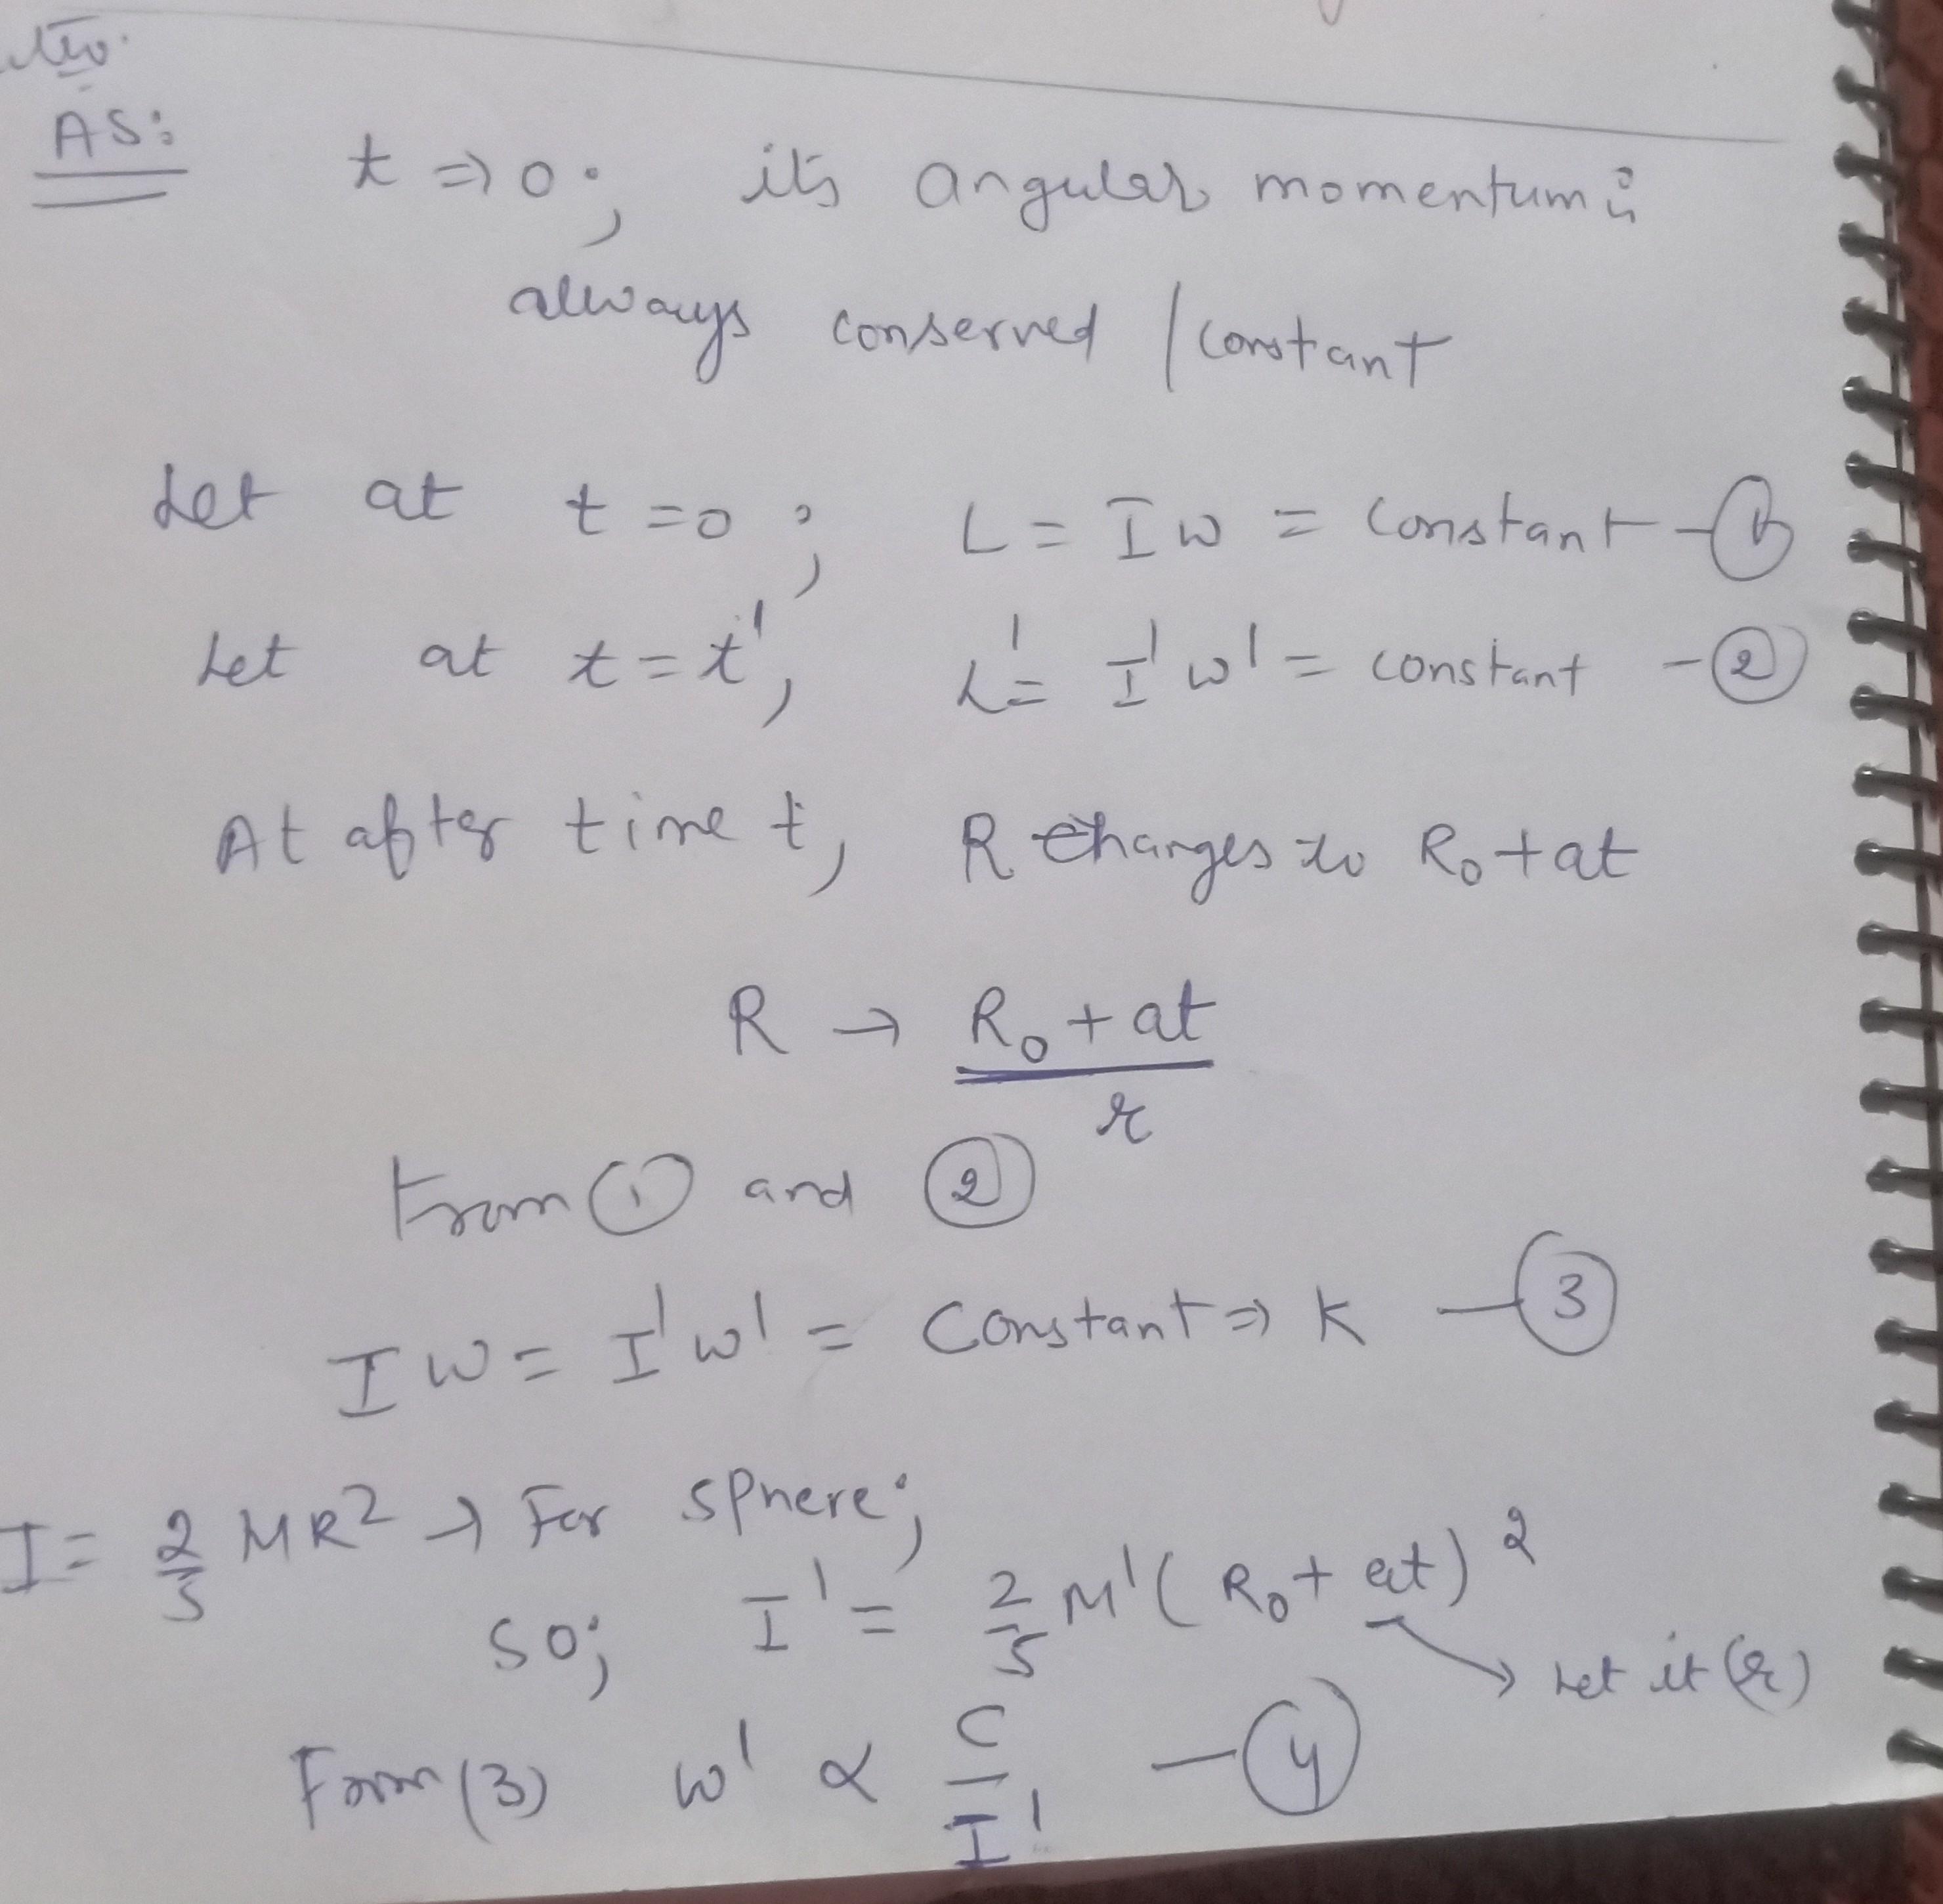 AS:
t ⇒ 0; its angular momentum is
always conserved / constant
Let at t = 0; L = Iw = Constant - ①
Let at t = t', L' = I'w' = constant - ②
At after time t, R changes to R₀ + at
R → R₀ + at
r
From ① and ②
Iw = I'w' = Constant ⇒ K - ③
I = 2/5 MR² → For sphere;
so; I' = 2/5 M'(R₀ + at)²
Let it (r)
From (3) w' ∝ C/I' - ④